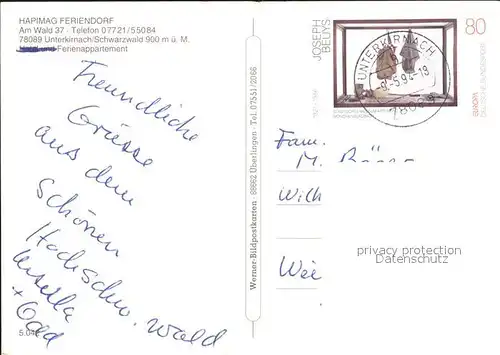 HAPIMAG FERIENDORF
Am Wald 37 · Telefon 07721/55084
78089 Unterkirnach/Schwarzwald 900 m ü. M.
Hotel und Ferienappartement
Freundliche
Grüsse
aus dem
schönen
Hochschw. wald
Ursella
+
5.048
Werner-Bildpostkarten · 88662 Überlingen · Tel. 07551/2066
JOSEPH
BEUYS
80
EUROPA
DEUTSCHE BUNDESPOST
UNTERKIRNACH
-5.94-18
Fam.
M.
Wilh
Wei
privacy protection
Datenschutz